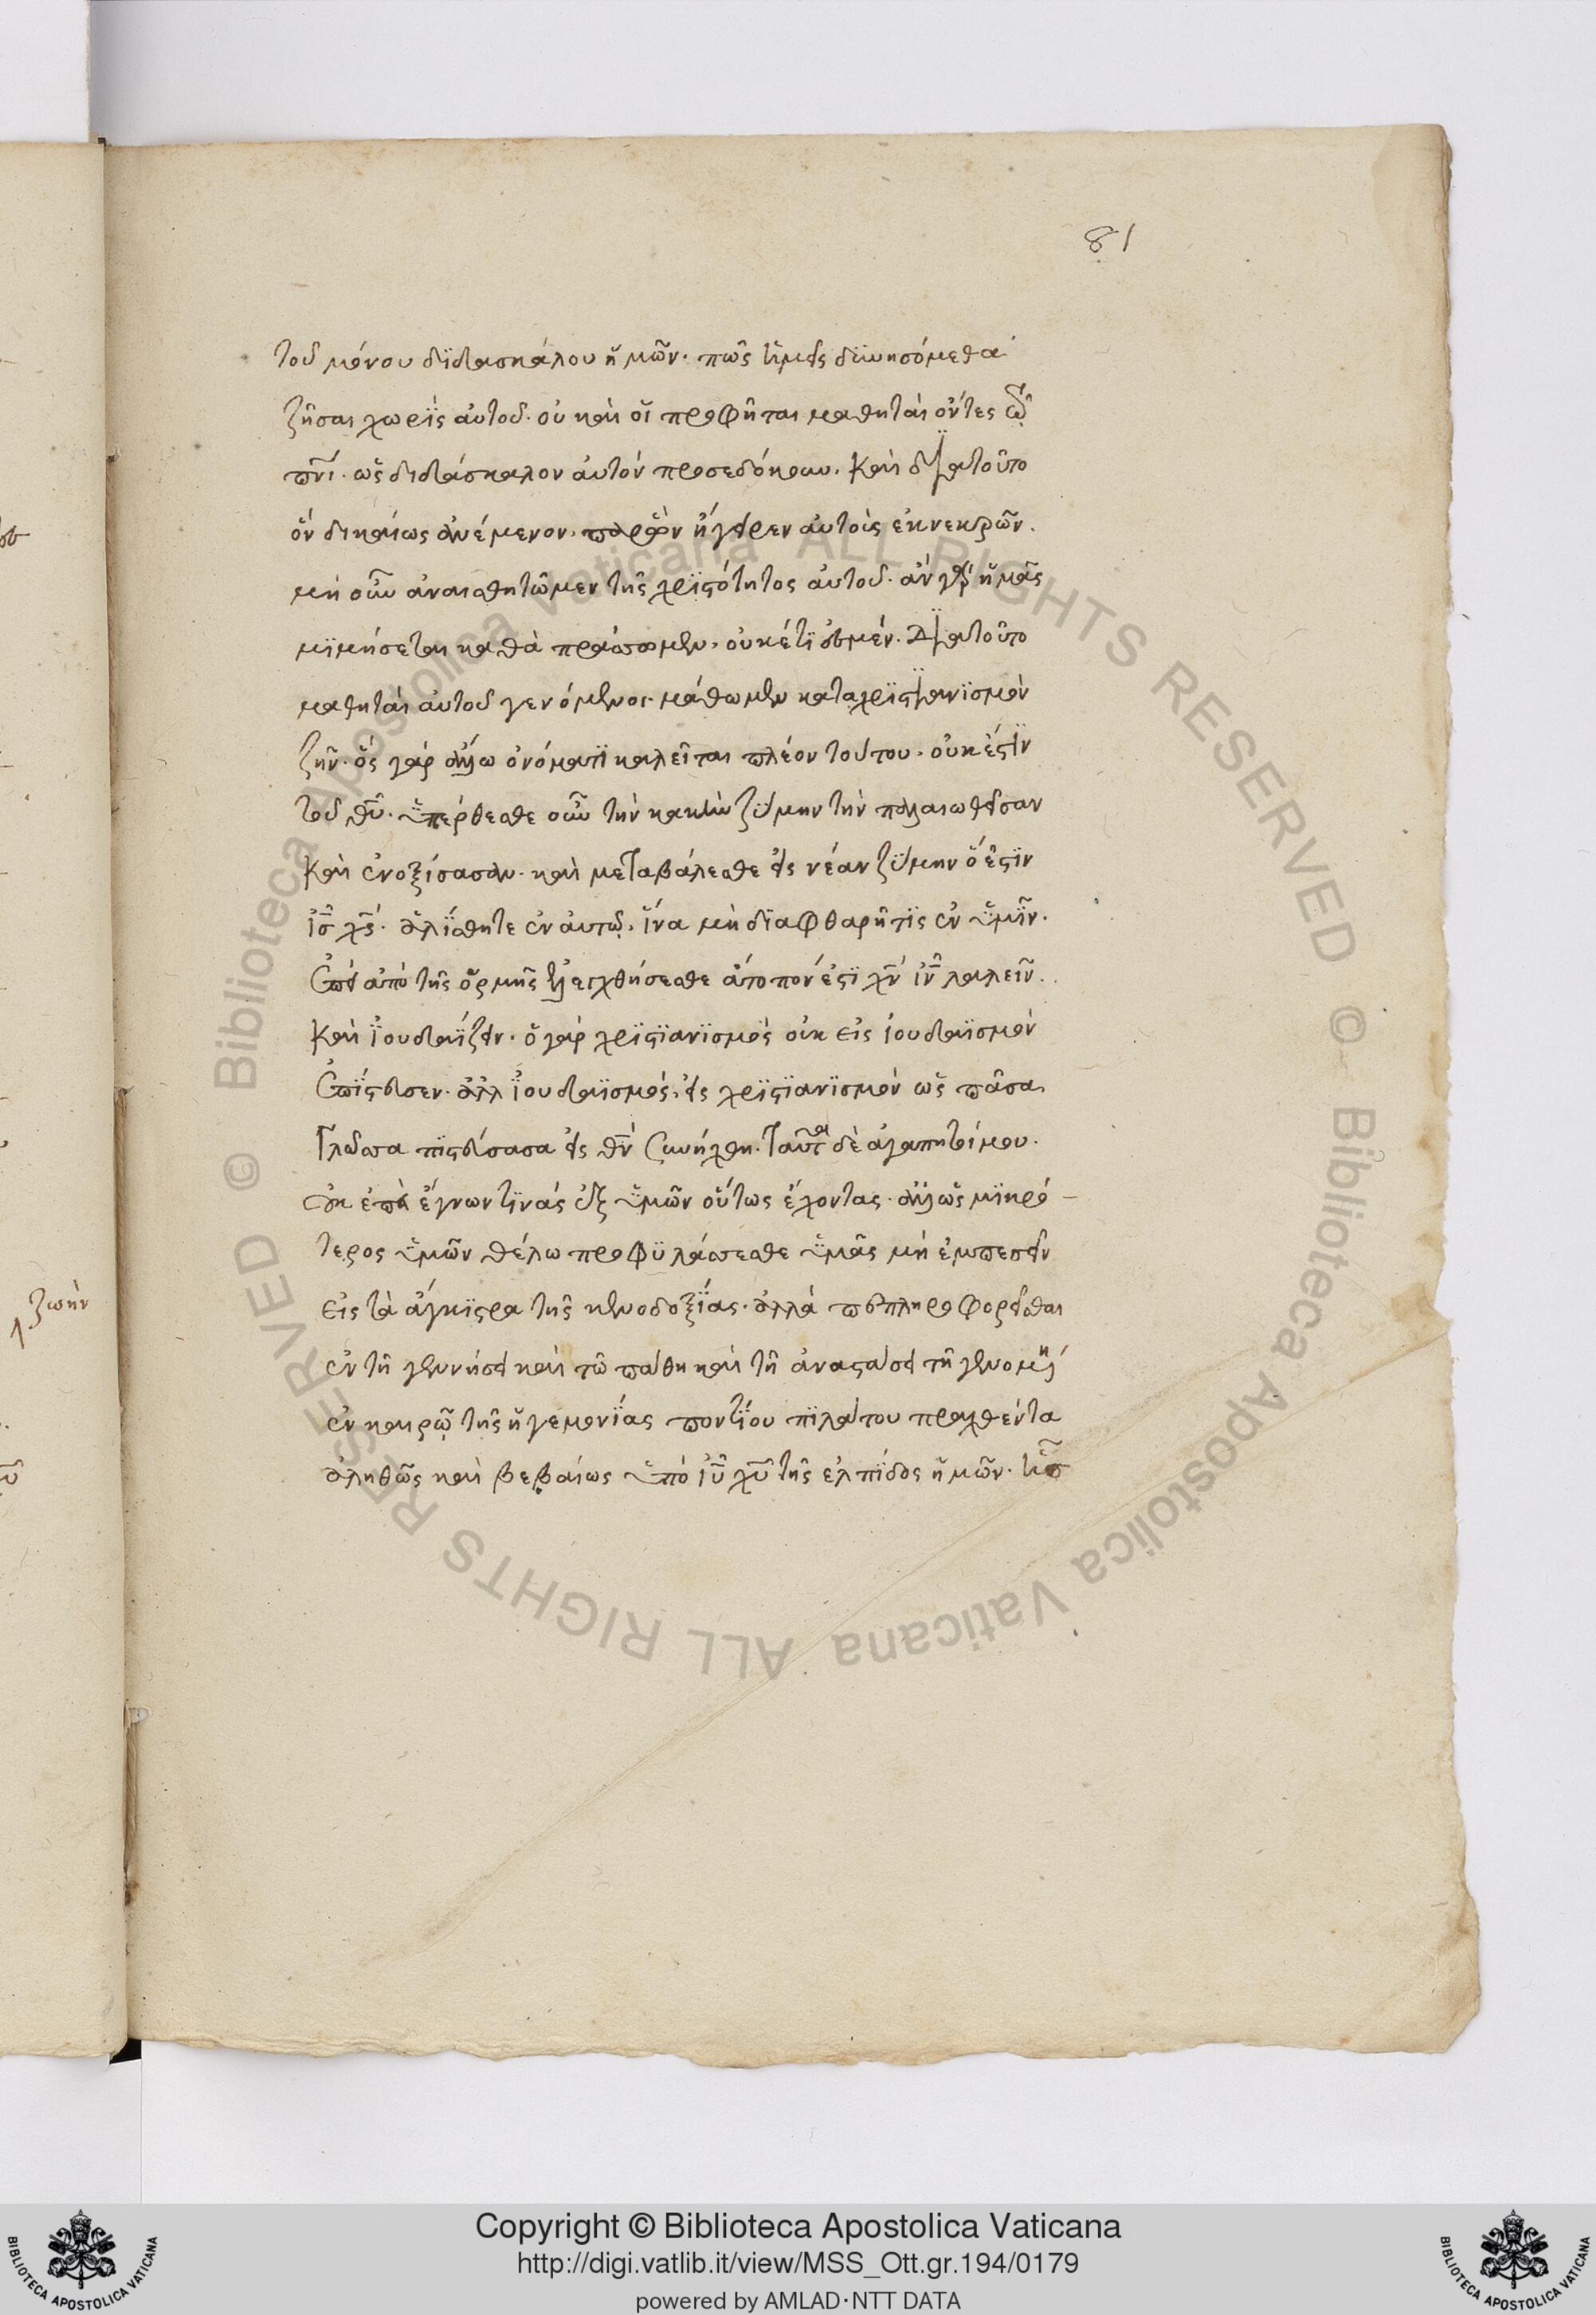 81
τοῦ μόνου διδασκάλου ἡμῶν. πῶς ἡμεῖς δυνησόμεθα
ζῆσαι χωρὶς αὐτοῦ. οὗ καὶ οἱ προφῆται μαθηταὶ ὄντες τῷ
πνι. ὡς διδάσκαλον αὐτὸν προσεδόκουν. καὶ διὰ τοῦτο
ὃν δικαίως ἀνέμενον. παρὼν ἤγειρεν αὐτοὺς ἐκ νεκρῶν.
μὴ οὖν ἀναισθητῶμεν τῆς χριστότητος αὐτοῦ. ἂν γὰρ ἡμᾶς
μιμήσεται καθὰ πράσσομεν. οὐκέτι ἐσμέν. Διὰ τοῦτο
μαθηταὶ αὐτοῦ γενόμενοι. μάθωμεν κατὰ χριστιανισμὸν
ζῆν. ὃς γὰρ ἄλλω ὀνόματι καλεῖται πλέον τούτου. οὐκ ἔστιν
τοῦ θυ. ὑπέρθεσθε οὖν τὴν κακὴν ζύμην τὴν παλαιωθεῖσαν
καὶ ἐνοξίσασαν. καὶ μεταβάλεσθε εἰς νέαν ζύμην ὅ ἐστιν
ις χς. ἁλίσθητε ἐν αὐτῷ. ἵνα μὴ διαφθαρῇ τις ἐν ὑμῖν.
ἐπεὶ ἀπὸ τῆς ὀσμῆς ἐλεγχθήσεσθε ἄτοπόν ἐστι χν ιν λαλεῖν.
καὶ ἰουδαΐζειν. ὁ γὰρ χριστιανισμὸς οὐκ εἰς ἰουδαϊσμὸν
ἐπίστευσεν. ἀλλ ἰουδαϊσμὸς εἰς χριστιανισμὸν ὡς πᾶσα
γλῶσσα πιστεύσασα εἰς θν συνήχθη. ταῦτα δὲ ἀγαπητοί μου.
οὐκ ἐπεὶ ἔγνων τινὰς ἐξ ὑμῶν οὕτως ἔχοντας. ἀλλ ὡς μικρό
τερος ὑμῶν θέλω προφυλάσσεσθε ὑμᾶς μὴ ἐμπεσεῖν
εἰς τὰ ἄγκιστρα τῆς κενοδοξίας. ἀλλὰ πεπληροφορεῖσθαι
ἐν τῇ γεννήσει καὶ τῷ πάθη καὶ τῇ ἀναστάσει τῇ γενομένῃ
ἐν καιρῷ τῆς ἡγεμονίας ποντίου πιλάτου πραχθέντα
ἀληθῶς καὶ βεβαίως ὑπὸ ιυ χυ τῆς ἐλπίδος ἡμῶν. ἧς
ζωὴν
Copyright © Biblioteca Apostolica Vaticana
http://digi.vatlib.it/view/MSS_Ott.gr.194/0179
powered by AMLAD·NTT DATA
BIBLIOTECA APOSTOLICA VATICANA
BIBLIOTECA APOSTOLICA VATICANA
© Biblioteca Apostolica Vaticana ALL RIGHTS RESERVED
© Biblioteca Apostolica Vaticana ALL RIGHTS RESERVED